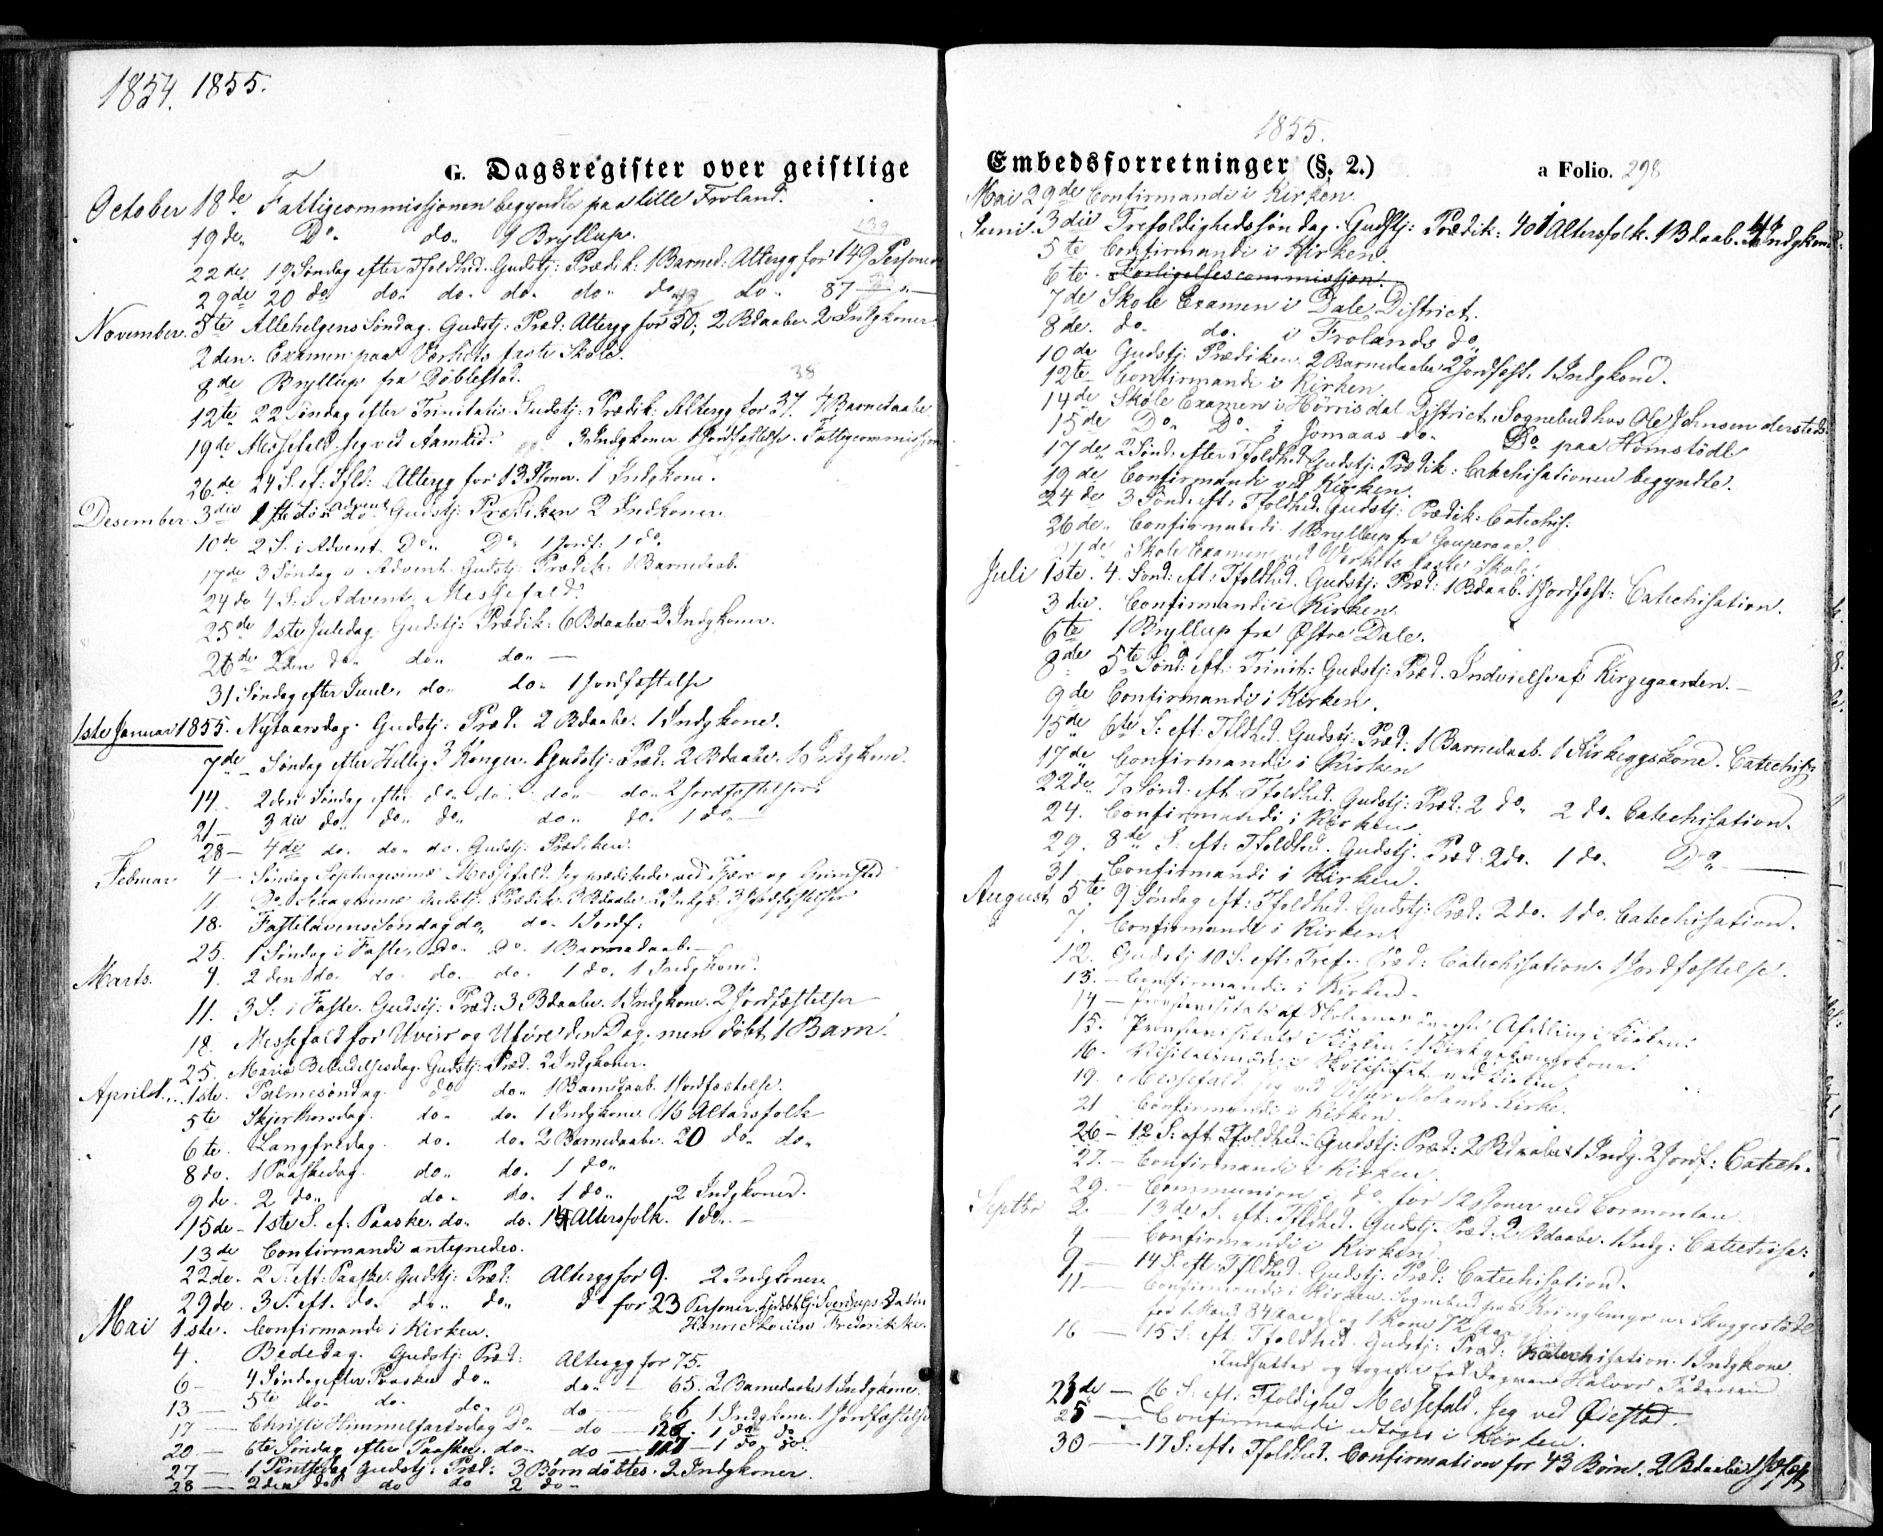 1854. 1855.
G. Dagsregister over geistlige
October 18de Fattigcommissjonen begyndte paa lille Froland.
19de Do. do. 1 Bryllup.
139
22de 19 Søndag efter Tfoldhed. Gudstj: Prædik: 1 Barned: Alterg for 149 Personer
29de 20 do do. do. do. do. do. do. 87
November. 5te Allehelgens Søndag. Gudstj: Præd: Alterg for 50; 2 Bdaabe. 2 Indgkoner.
2den. Examen paa Værkets faste Skole.
8de Bryllup fra Bøblestad.
38
12te 22 Søndag efter Trinitatis. Gudstj: Prædik: Alterg for 37. 4 Barnedaabe
19de Messefald. Jeg ved Aamlid. 3 Indgkoner. 1 Jordfæstelse. Fattigcommission
26de 24 S. ef: Tfld: Alterg for 13 Psoner. 1 Indgkone.
Desember. 3die 1ste Søn. Advent Gudstj: Prædiken 2 Indkoner.
10de 2 S. i Advent Do. Do. 1 Jordf: 1 do.
17de 3 Søndag i Advent. Gudstj: Prædik: 1 Barnedaab.
24de 4 S. i Advent. Messefald.
25de 1ste Juledag. Gudstj: Prædik: 6 Bdaabe 3 Indgkoner.
26de 2den do. do. do. —
31. Søndag efter Juul. do. do. 1 Jordfæstelse
1ste Januar 1855. Nytaarsdag. Gudstj: Præd. 2 Bdaabe. 1 Indgkone.
7de Søndag efter Hellig 3 Konger. Gudstj: Præd. 2 Bdaabe. 1 Indgkone.
14. 2den Søndag efter do. do. do. do. 2 Jordfæstelser.
21— 3die do. do. do. do. do. 1 do.
28— 4de do. do. do. Gudstj: Prædiken.
Februar 4— Søndag Septuagesimæ Messefald. Jeg prædikede ved Fjære og Grimstad
11. Do. Sexagesimæ Gudstj: Prædik. 3 Bdaabe. 2 Indgk. 3 Jordfæstelser
18. Fastelavens Søndag do. do. 1 Jordf:
25. 1 Søndag i Faste. do. do. 1 Barnedaab.
Marts. 4. 2den do. do. do. do. 1 do. 1 Indgkone.
11. 3 S: i Faste. Gudstj: Præd: 3 Bdaabe. 1 Indgkone. 2 Jordfæstelser
18. Messefald for Uveir og Uføre den Dag, men døbt 1 Barn.
25. Mariæ Bebudelsesdag. Gudstj: Præd. 2 Indgkoner.
Aprili. 1ste. Palmesøndag. do. do. 1 Barnedaab. 1 Jordfæstelse.
5te Skjertorsdag. do. do. 1 Indgkone. 16 Altersfolk
6te. Langfredag. do. do. 2 Barnedaabe. 20 do. do.
8de. 1 Paaskedag. do. do. 1 do.
9de. 2 do. do. do. 1 do. 2 Indgkoner.
15de— 1ste S. ef. Paaske. do. do. 14 Altersfolk. 1 do. —
13de Confirmandi antegnedes.
22de. 2 S: eft: Paaske. Gudstj: Præd: Alterg for 9. 2 Indgkoner.
29de. 3 S. eft. do. do. do. do for 23 Personer. Hjdbt G. Sverdrups Datter
Mai 1ste. Confirmandi i Kirken. Henrie Lovise Frederikke.
4. Bededag. Gudstj: Præd: Alterg for 75.
6— 4 Søndag efter Paaske do. do. — 65. 2 Barnedaabe 1 Indgkone.
13— 5te do. do. do. do — 66 1 Indgkone. 1 Jordfæstelse
17— Christi Himmelfartsdag Do. do — 126. 1 do do
20— 6te Søndag efter Paaske. do. do — 117 — 1 do do
27— 1 Pintsedag Gudstj: Præd: 3 Børn døbtes. 2 Indgkoner.
28— 2den do do do 2 do.
1855.
Embedsforretninger (§. 2.) a Folio. 298
Mai 29de Confirmandi i Kirken.
Juni. 3die Trefoldighedssøndag. Gudstj: Prædik: 401 Altersfolk. 1 Bdaab. 4 Indgkoner.
5te Confirmandi i Kirken.
6te. Forligelsescommissjon.
7de Skole Examen i Dale District.
8de. do. do. i Frolands do.
10de Gudstj: Prædiken. 2 Barnedaabe 2 Jordfæst. 1 Indgkone.
12te Confirmandi i Kirken.
14de Skole Examen i Hørrisdal District. Sognebud hos Ole Johnsen dersteds
15de Do. Do. i Jomaas do. Do. paa Homstødle
17de. 2 Sønd. efter Tfoldhed Gudstj: Prædik: Catechisationen begyndte.
19de Confirmandi ved Kirken.
24de 3 Sønd: eft: Tfoldhed. Gudstj: Prædik: Catechis:
26de. Confirmandi. 1 Bryllup fra
27de. Skole Examen ved Værkets faste Skole.
Juli 1ste. 4. Sønd: eft: Tfoldhed. Gudstj: Præd: 1 Bdaab. 1 Jordfæst: Catechisation.
3die. Confirmandi i Kirken.
6te 1 Bryllup fra Østre Dale.
8de 5te Sønd: eft: Trinit: Gudstj: Præd. Indvielse af Kirgegaarden.
9de Confirmandi i Kirken.
15de 6te S: eft: Tfldhed. Gudstj: Præd: 1 Barnedaab. 1 Kirkeggskone. Catechis:
17de Confirmandi i Kirken
22de. 7 Sønd: eft. Tfoldhed. Gudstj: Præd: 2 do. 2 do. Catechisation.
24. Confirmandi i Kirken
29. 8de S. eft: Tfoldhed. Gudstj: Præd: 2 do. 1 do. Do. —
31. Confirmandi i Kirken.
August 5te 9 Søndag eft: Tfoldhed. Gudstj: Præd: 2 do. 1 do. Catechisation.
7. Confirmandi i Kirken
12. Gudstj: 10 S: eft: Tref: Præd: Catechisation. 1 Jordfæstelse.
13.— Confirmandi i Kirken.
14— Provstevisitats af Skolernes øverste Afdeling i Kirken.
15. Provstevisitats i Kirken. 1 Kirkegangskone.
16. Visitatsmøde i Skolehuset ved Kirken.
19. Messefald. Jeg ved Vester Molands Kirke.
21 Confirmandi i Kirken.
26— 12 S: eft Tfoldhed. Gudstj: Præd: 2 Bdaabe 1 Indg. 2 Jordf: Catech.
27.— Confirmandi i Kirken.
29.— Communion i do. for 12 Psoner ved Cormontan
Septbr 2.— 13de S. eft: Tfldhed. Gudstj: Præd: 2 Bdaabe. 1 Indg: Catechisa:
4— Confirmandi i Kirken
9— 14 S: eft. Tfldhed. Gudstj. Præd: Catechisation.
11— Confirmandi i Kirken. Sognebud paa Skuggestøde
for 1 Mand 84 Aar gl og 1 Kone 72 Aar
16— 15 S: eft: Tfoldhed. Gudstj: Præd: Katechisation. 1 Indgkone
Indsatter og toges i Eed Halvor
23de— 16 S: eft: Tfoldighed Messefald. Jeg ved Øiestad.
25— Confirmandi udtoges i Kirken.
30— 17 S: eft: Tfoldhed. Confirmation for 43 Børn. 2 Bdaabe 1 Jofæst